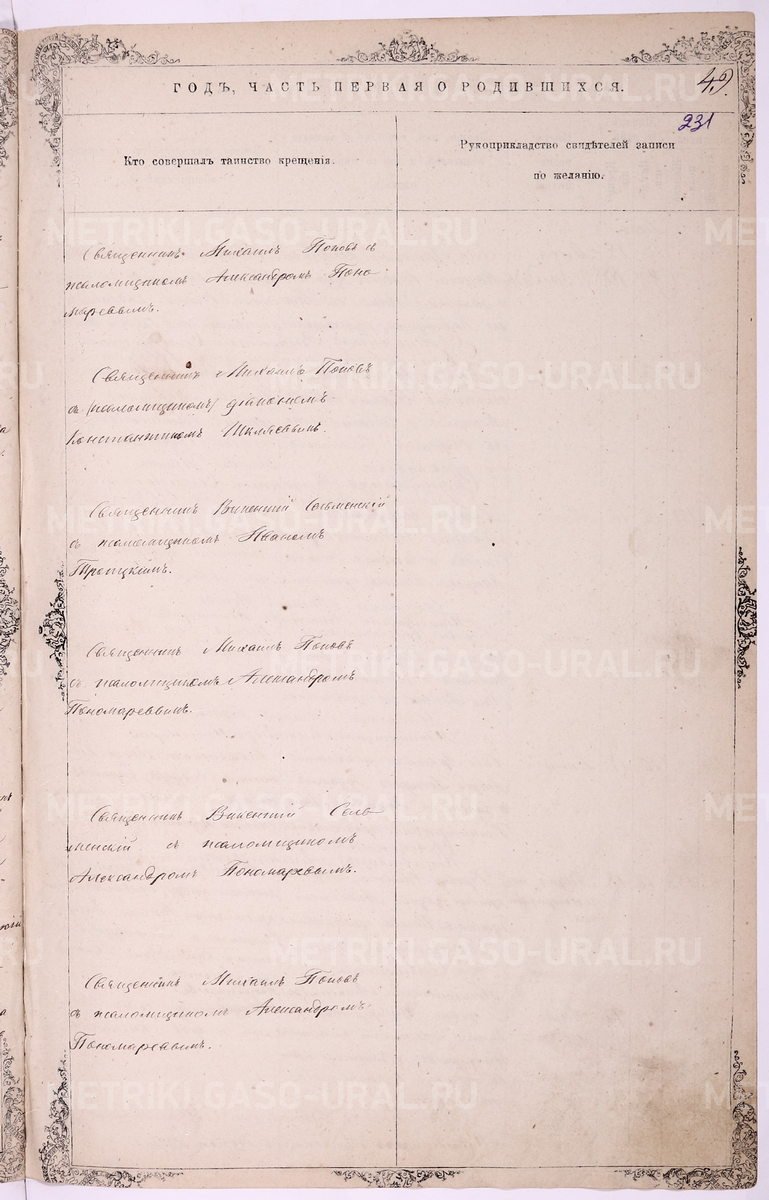 ГОДЪ, ЧАСТЬ ПЕРВАЯ О РОДИВШИХСЯ.
49.
231
Кто совершалъ таинство крещенія.
Рукоприкладство свидѣтелей записи
по желанію.
Священникъ Михаилъ Поповъ съ
псаломщикомъ Александромъ Поно
маревымъ.
Священникъ Михаилъ Поповъ
съ псаломщикомъ діакономъ
Константиномъ Шкляевымъ.
Священникъ Викентій Сельменскій
съ псаломщикомъ Иваномъ
Троицкимъ.
Священникъ Михаилъ Поповъ
съ псаломщикомъ Александромъ
Пономаревымъ.
Священникъ Викентій Сель
менскій съ псаломщикомъ
Александромъ Пономаревымъ.
Священникъ Михаилъ Поповъ
съ псаломщикомъ Александромъ
Пономаревымъ.
METRIKI.GASO-URAL.RU